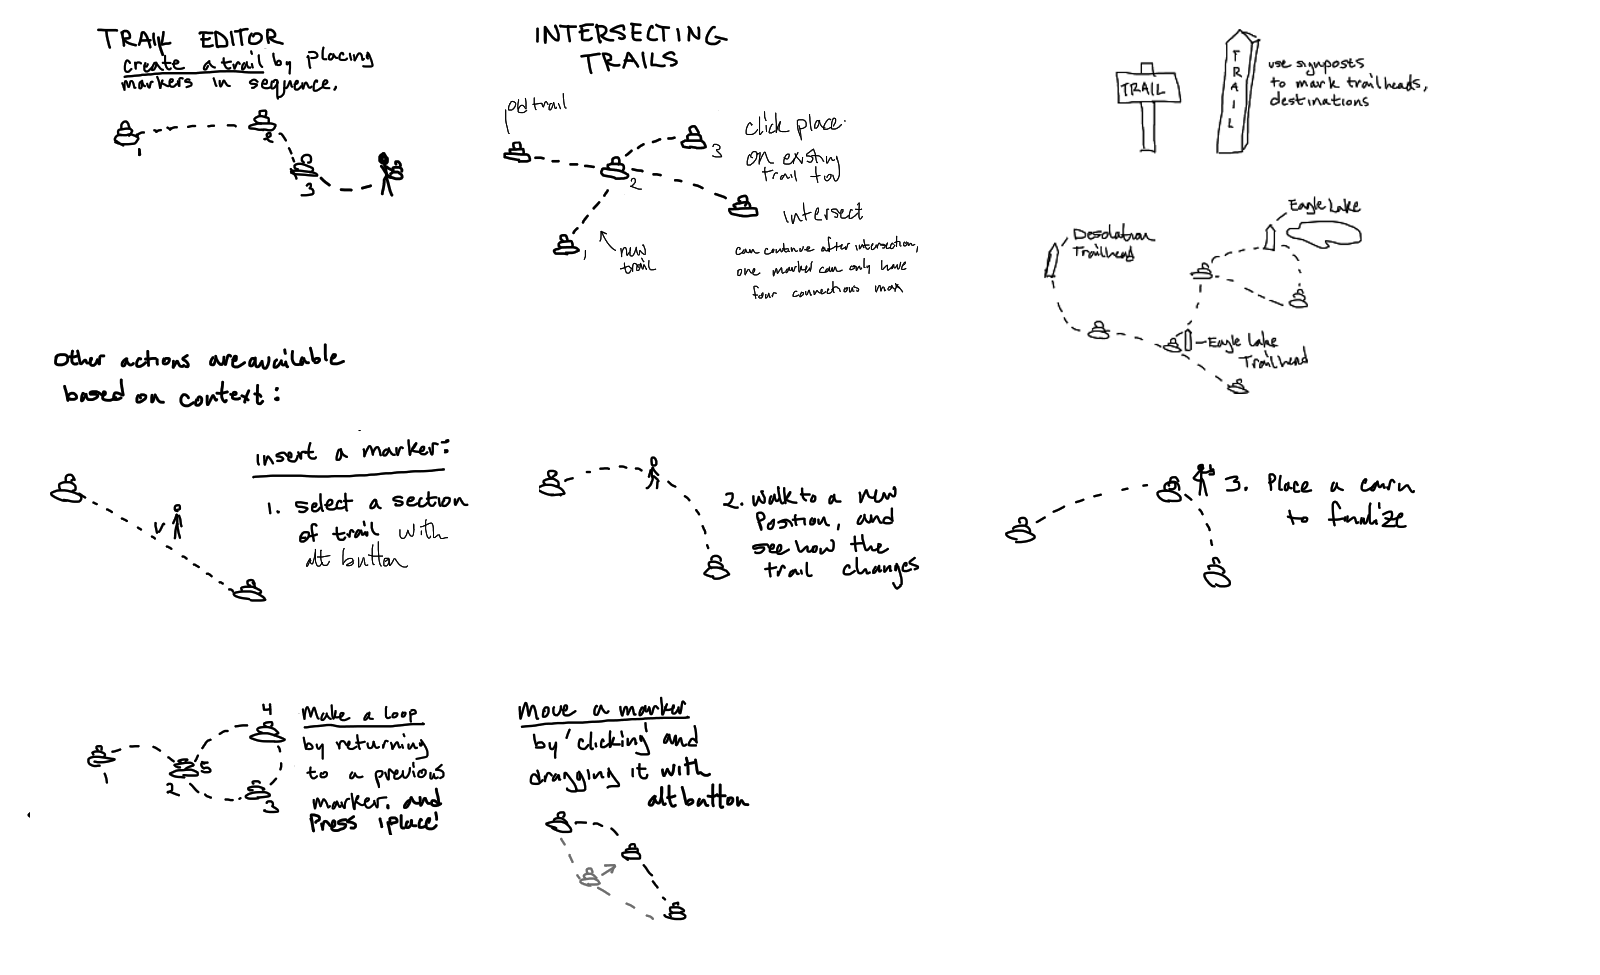 TRAIL EDITOR
create a trail by placing
markers in sequence.
1
2
3
INTERSECTING
TRAILS
old trail
3
2
1
new
trail
click place
on existing
trail to
intersect
can continue after intersection,
one marked can only have
four connections max
TRAIL
TRAIL
use signposts
to mark trailheads,
destinations
Eagle Lake
Desolation
Trailhead
Eagle Lake
Trailhead
Other actions are available
based on context:
insert a marker:
1. select a section
of trail with
alt button
2. Walk to a new
Position, and
see how the
trail changes
3. Place a cairn
to finalize
4
1
2
5
3
Make a loop
by returning
to a previous
marker. and
Press 'place'
Move a marker
by 'clicking' and
dragging it with
alt button